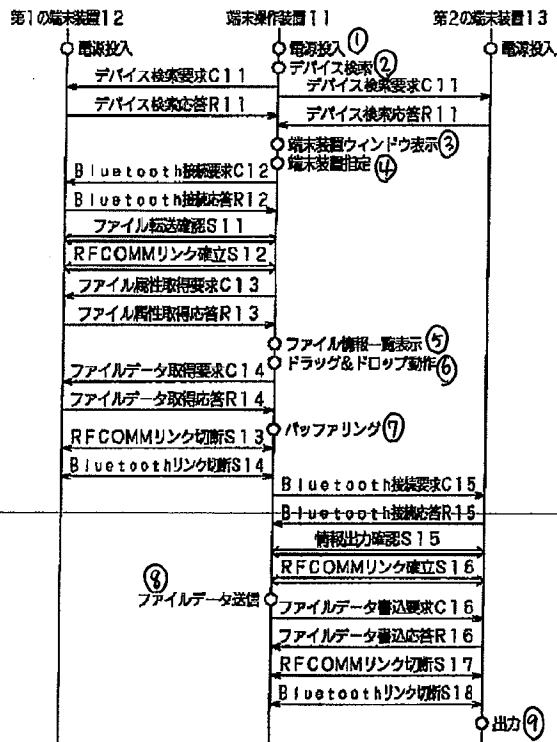 第1の端末装置12 端末操作装置11 第2の端末装置13
電源投入 電源投入 ① 電源投入
デバイス検索 ②
デバイス検索要求C11 デバイス検索要求C11
デバイス検索応答R11 デバイス検索応答R11
端末装置ウィンドウ表示 ③
端末装置指定 ④
Bluetooth接続要求C12
Bluetooth接続応答R12
ファイル転送確認S11
RFCOMMリンク確立S12
ファイル属性取得要求C13
ファイル属性取得応答R13
ファイル情報一覧表示 ⑤
ドラッグ&ドロップ動作 ⑥
ファイルデータ取得要求C14
ファイルデータ取得応答R14
バッファリング ⑦
RFCOMMリンク切断S13
Bluetoothリンク切断S14
Bluetooth接続要求C15
Bluetooth接続応答R15
情報出力確認S15
RFCOMMリンク確立S16
⑧
ファイルデータ送信
ファイルデータ書込要求C16
ファイルデータ書込応答R16
RFCOMMリンク切断S17
Bluetoothリンク切断S18
出力 ⑨